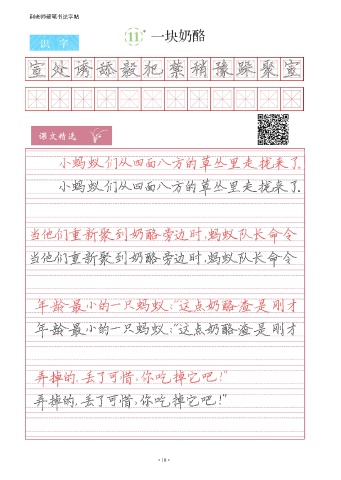 田老师硬笔书法字帖
11 一块奶酪
识字
宣处诱舔毅犯禁稍豫跺聚宣
课文精选
小蚂蚁们从四面八方的草丛里走拢来了。
小蚂蚁们从四面八方的草丛里走拢来了。
当他们重新聚到奶酪旁边时,蚂蚁队长命令
当他们重新聚到奶酪旁边时,蚂蚁队长命令
年龄最小的一只蚂蚁:“这点奶酪渣是刚才
年龄最小的一只蚂蚁:“这点奶酪渣是刚才
弄掉的,丢了可惜,你吃掉它吧!”
弄掉的,丢了可惜,你吃掉它吧!”